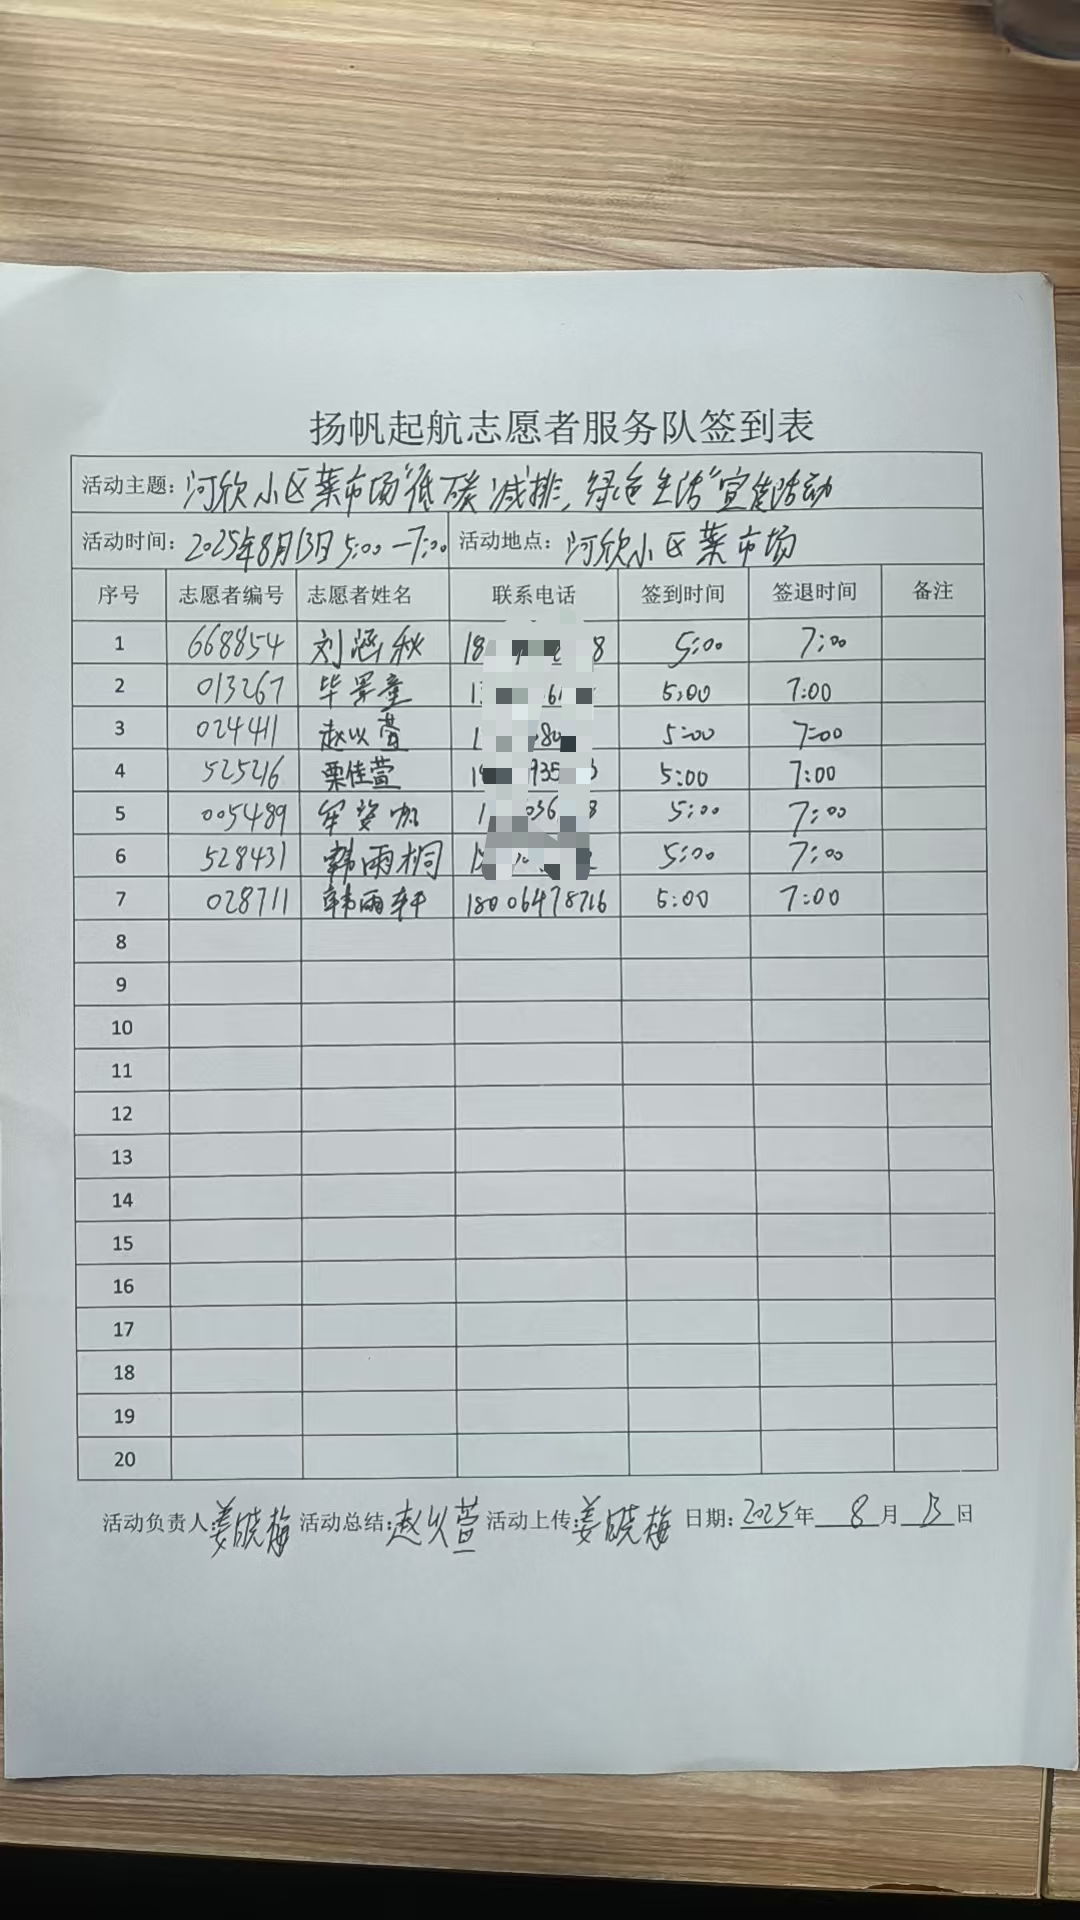 扬帆起航志愿者服务队签到表
活动主题: 河欣小区菜市场“低碳减排,绿色生活”宣传活动
活动时间: 2025年8月13日 5:00—7:00 活动地点: 河欣小区菜市场
序号 志愿者编号 志愿者姓名 联系电话 签到时间 签退时间 备注
1 668854 刘涵秋 5:00 7:00
2 013267 毕景童 5:00 7:00
3 024411 赵以萱 5:00 7:00
4 525216 栗佳萱 5:00 7:00
5 005489 牟姿 5:00 7:00
6 528431 韩雨桐 5:00 7:00
7 028711 韩雨轩 18006478716 5:00 7:00
8
9
10
11
12
13
14
15
16
17
18
19
20
活动负责人:姜晓梅 活动总结:赵以萱 活动上传:姜晓梅 日期:2025年 8月13日